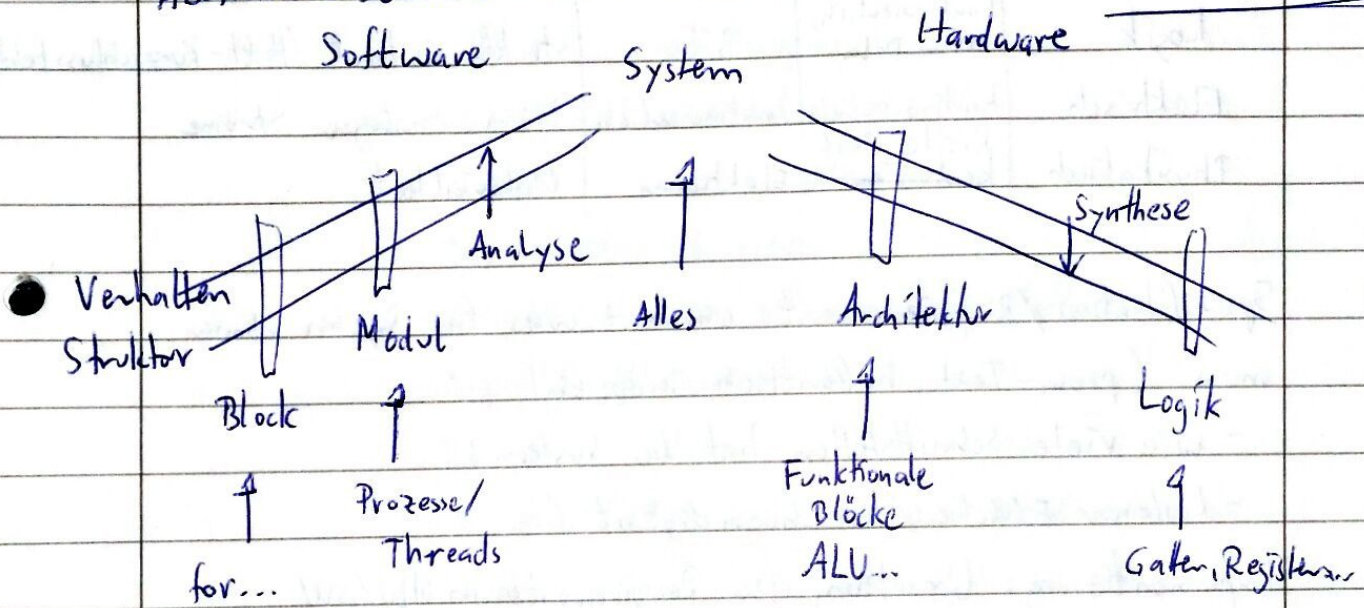 Software
System
Hardware
Synthese
Analyse
Verhalten
Struktur
Modul
Alles
Architektur
Block
Logik
Prozesse/
Threads
Funktionale
Blöcke
ALU...
for...
Gatter, Register...